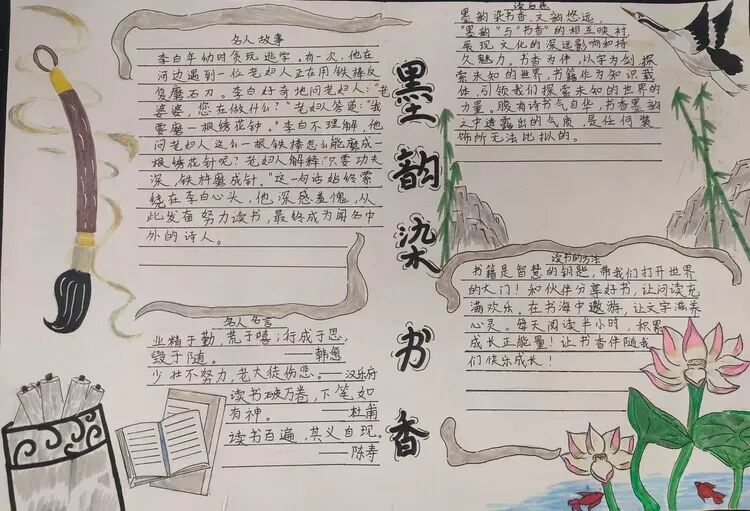 名人故事
李白年幼时贪玩逃学。有一次，他在
河边遇到一位老妇人正在用铁棒反
复磨石刀。李白好奇地问老妇人："老
婆婆，您在做什么？"老妇人答道："我
要磨一根绣花针。"李白不理解，他
问老妇人这么一根铁棒怎么能磨成一
根绣花针呢？老妇人解释："只要功夫
深，铁杵磨成针。"这一句话始终萦
绕在李白心头，他深感羞愧，从
此发奋努力读书，最终成为闻名中
外的诗人。
名人名言
业精于勤，荒于嬉；行成于思，
毁于随。——韩愈
少壮不努力，老大徒伤悲。——汉乐府
读书破万卷，下笔如
有神。——杜甫
读书百遍，其义自现。
——陈寿
墨韵染书香
墨韵染书香，文韵悠远，
"墨韵"与"书香"的相互映衬，
展现文化的深远影响和持
久魅力。书香为伴，以字为剑，探
索未知的世界，书籍化为知识载
体，引领我们探索未知的世界的
力量。腹有诗书气自华，书香墨韵
之中透露出的气质，是任何装
饰所无法比拟的。
读书的方法
书籍是智慧的钥匙，带我们打开世界
的大门！和伙伴分享好书，让阅读充
满欢乐。在书海中遨游，让文字滋养
心灵。每天阅读半小时，积累
成长正能量！让书香伴随我
们快乐成长！